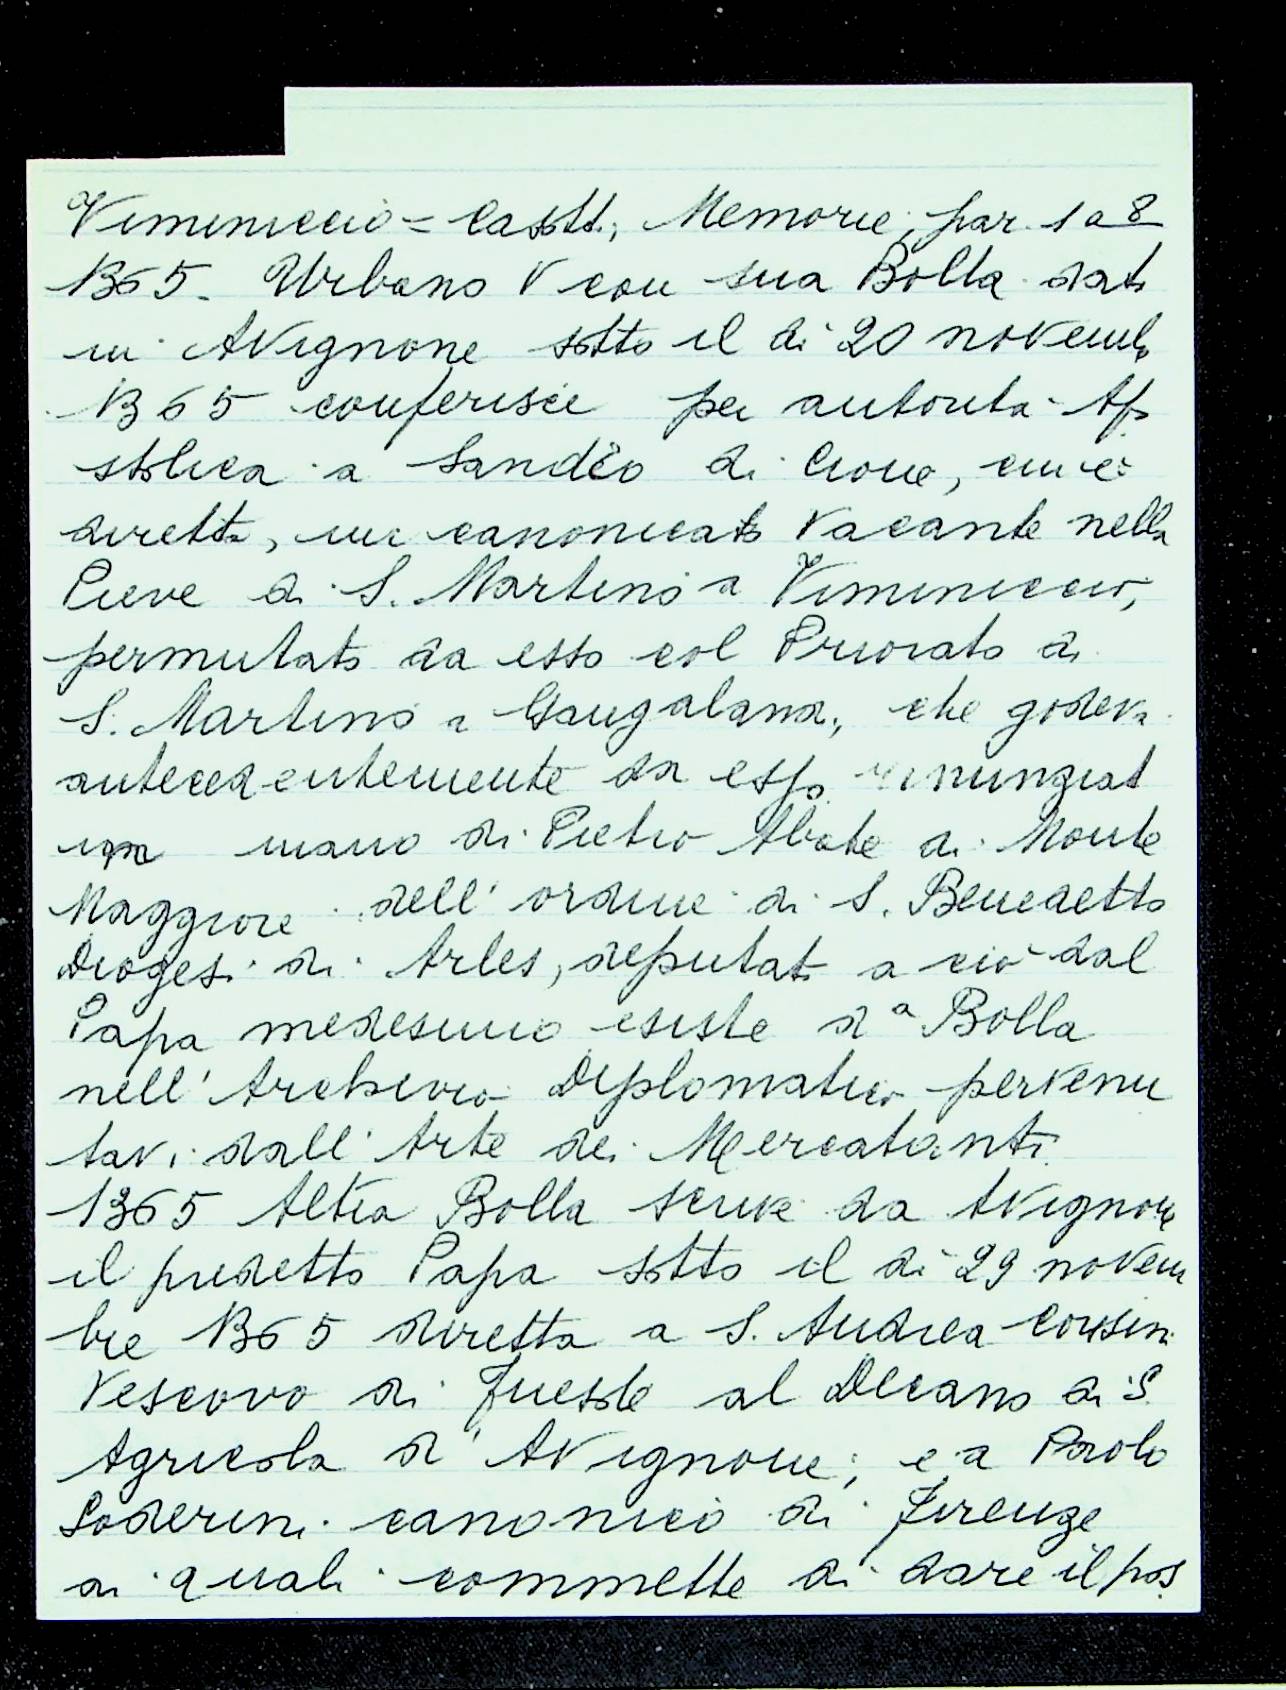 Viminiccio = Castt., Memorie, par. 1 a 8
1365. Urbano V con sua Bolla dat
in Avignone sotto il dì 20 novemb
1365 conferisce per autorità Ap
stolica a Sandèo di Cione, cui è
diretta, un canonicato vacante nella
Pieve di S. Martino a Viminiccio,
permutato da esso col Priorato di
S. Martino a Gangalandi, che godeva
antecedentemente da esso rinunziat
in mano di Pietro Abate di Monte
Maggiore dell' ordine di S. Benedetto
Diogesi di Arles, deputat a ciò dal
Papa medesimo esiste dª Bolla
nell' Archivio Diplomatico pervenu
tavi dall' Arte dei Mercatanti.
1365 Altra Bolla scrive da Avignone
il predetto Papa sotto il dì 29 novem
bre 1365 diretta a S. Andrea Corsini
Vescovo di Fiesole al Decano di S.
Agricola d' Avignone; e a Paolo
Soderini canonico di Firenze
ai quali commette di dare il pos